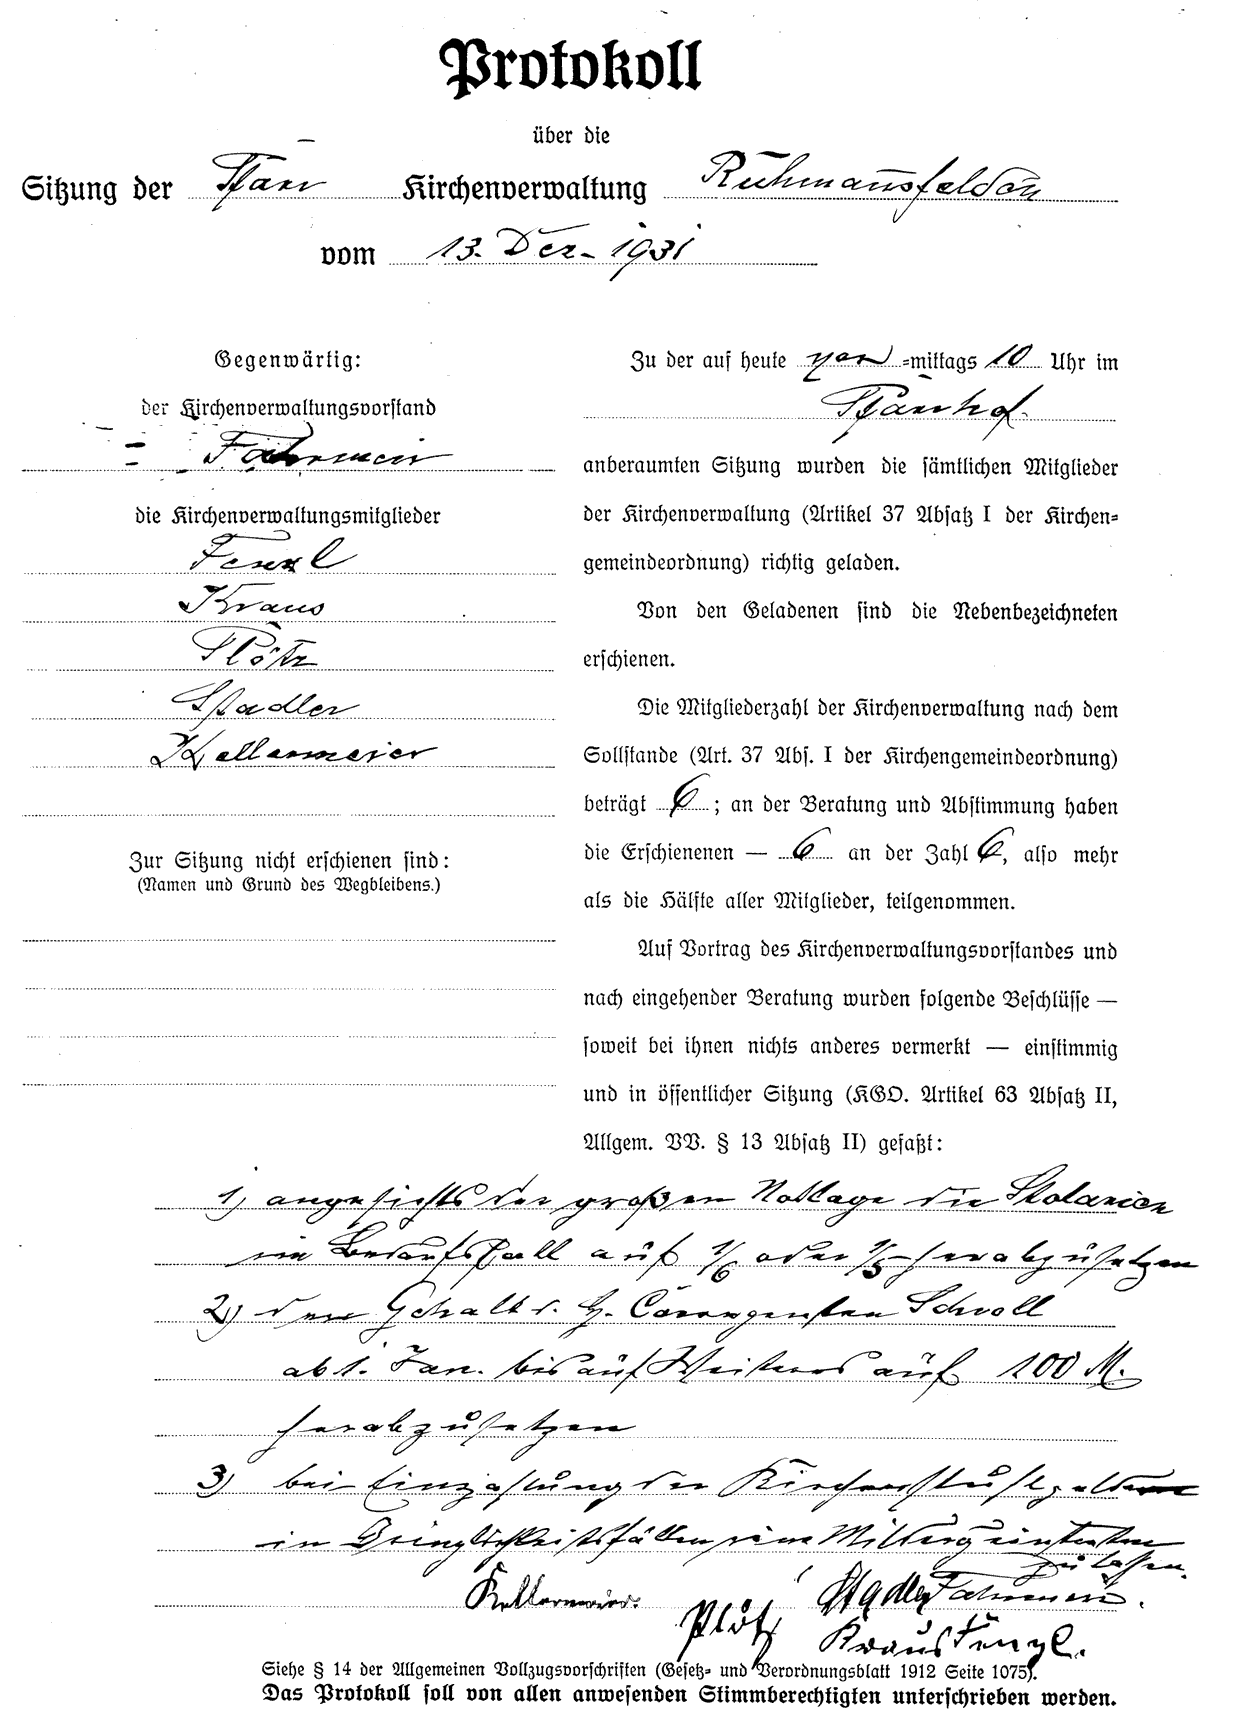 Protokoll
über die
Sitzung der Pfarr Kirchenverwaltung Ruhmannsfelden
vom 13. Dez. 1931
Gegenwärtig:
der Kirchenverwaltungsvorstand
Fahrmeier
die Kirchenverwaltungsmitglieder
Fenzl
Kraus
Plötz
Stadler
Kellermeier
Zur Sitzung nicht erschienen sind:
(Namen und Grund des Wegbleibens.)
Zu der auf heute vor =mittags 10 Uhr im
Pfarrhof
anberaumten Sitzung wurden die sämtlichen Mitglieder
der Kirchenverwaltung (Artikel 37 Absatz I der Kirchen=
gemeindeordnung) richtig geladen.
Von den Geladenen sind die Nebenbezeichneten
erschienen.
Die Mitgliederzahl der Kirchenverwaltung nach dem
Sollstande (Art. 37 Abs. I der Kirchengemeindeordnung)
beträgt 6; an der Beratung und Abstimmung haben
die Erschienenen — 6 an der Zahl 6, also mehr
als die Hälfte aller Mitglieder, teilgenommen.
Auf Vortrag des Kirchenverwaltungsvorstandes und
nach eingehender Beratung wurden folgende Beschlüsse —
soweit bei ihnen nichts anderes vermerkt — einstimmig
und in öffentlicher Sitzung (KGO. Artikel 63 Absatz II,
Allgem. VV. § 13 Absatz II) gefaßt:
1) angesichts der großen Notlage die Stolarien
im Bedarfsfall auf 1/6 oder 1/5 herabzusetzen
2) den Gehalt d. H. Chorregenten Schroll
ab 1. Jan. bis auf Weiteres auf 100 M.
herabzusetzen
3) bei Einzahlung der Kirchenstuhlgelder
in Dringlichkeitsfällen eine Milderung eintreten
zu lassen.
Kellermeier. Plötz Stadler Fahrmeier.
Kraus Fenzl.
Siehe § 14 der Allgemeinen Vollzugsvorschriften (Gesetz= und Verordnungsblatt 1912 Seite 1075).
Das Protokoll soll von allen anwesenden Stimmberechtigten unterschrieben werden.